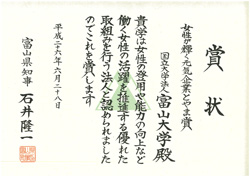 賞状
女性が輝く元気企業とやま賞
国立大学法人富山大学殿
貴学は女性の登用や能力の向上など
働く女性の活躍を推進する優れた
取組みを行う法人と認められました
のでこれを賞します
平成二十六年六月二十八日
富山県知事 石井隆一